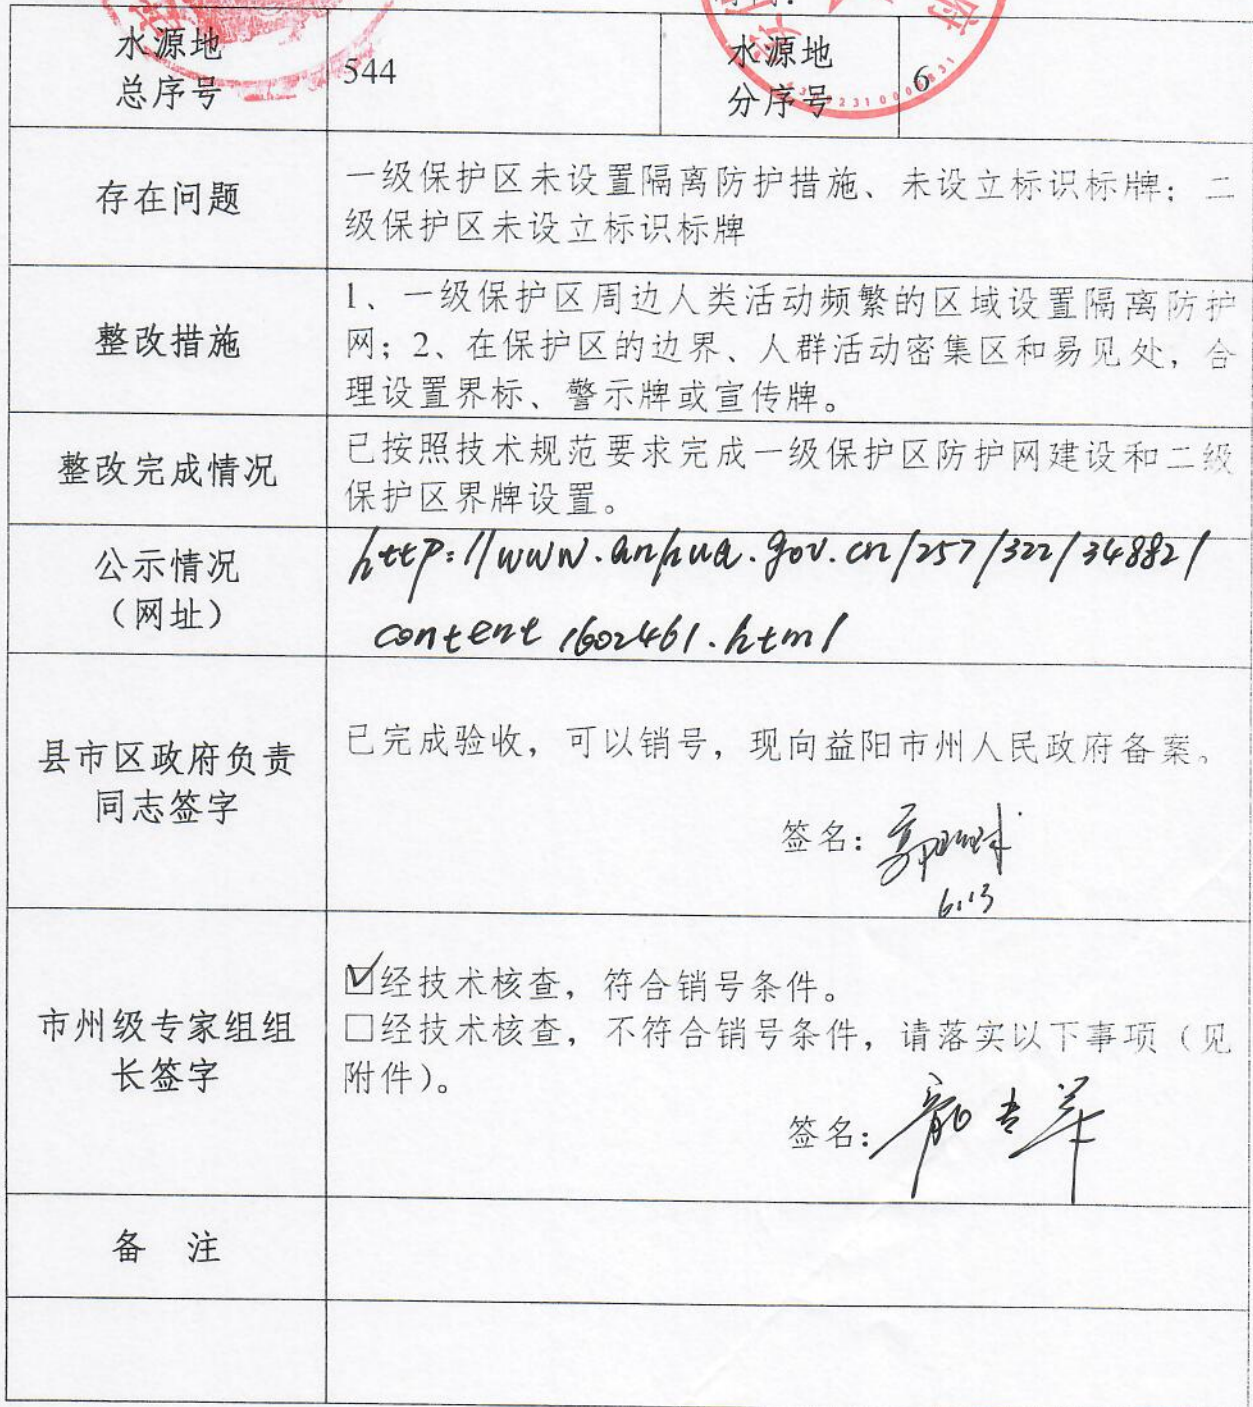 水源地
总序号
544
水源地
分序号
6
存在问题
一级保护区未设置隔离防护措施、未设立标识标牌；二
级保护区未设立标识标牌
整改措施
1、一级保护区周边人类活动频繁的区域设置隔离防护
网；2、在保护区的边界、人群活动密集区和易见处，合
理设置界标、警示牌或宣传牌。
整改完成情况
已按照技术规范要求完成一级保护区防护网建设和二级
保护区界牌设置。
公示情况
（网址）
http://www.anhua.gov.cn/257/322/34882/
content1602461.html
县市区政府负责
同志签字
已完成验收，可以销号，现向益阳市州人民政府备案。
签名：
6.13
市州级专家组组
长签字
☑经技术核查，符合销号条件。
□经技术核查，不符合销号条件，请落实以下事项（见
附件）。
签名：
备 注